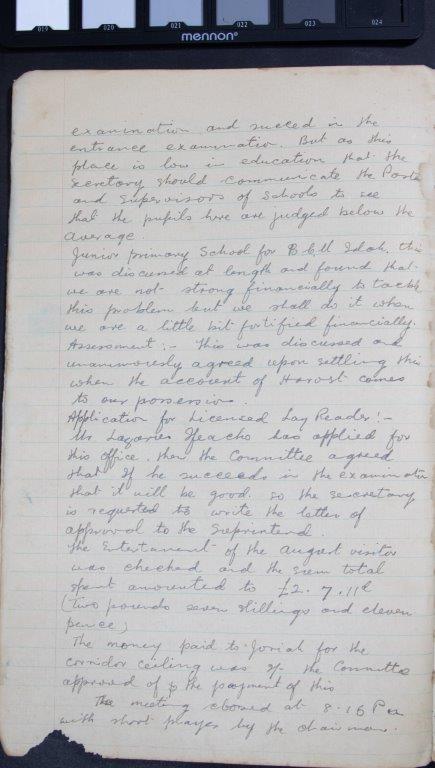 019 020 021 022 023 024
mennon
examination and succeed in the
entrance examination. But as this
place is low in education that the
secretary should communicate the Pastor
and Supervisors of Schools to see
that the pupils here are judged below the
average.
Junior primary School for B & U Idah, this
was discussed at length and found that
we are not strong financially to tackle
this problem but we shall do it when
we are a little bit fortified financially.
Assessment:- This was discussed and
unanimously agreed upon settling this
when the account of Harvest comes
to our possession.
Application for Licensed Lay Reader:-
Mr Lazarus has applied for
this office, then the Committee agreed
that if he succeeds in the examination
that it will be good. so the secretary
is requested to write the letter of
approval to the Suprintend.
The Entertament of the august visitor
was checked and the sum total
spent amounted to £2. 7. 11d
(Two pounds seven shillings and eleven
pence)
The money paid to Josiah for the
corridor ceiling was the Committee
approved of the payment of this
The meeting closed at 8.16 Pm
with short prayer by the chairman.